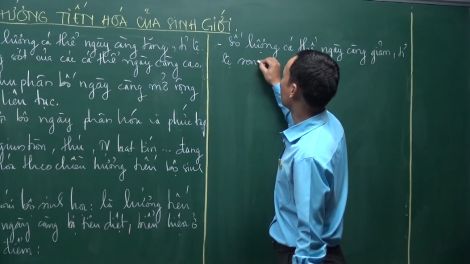 HƯỚNG TIẾN HÓA CỦA SINH GIỚI
lượng cá thể ngày càng tăng, tỉ lệ
sót của các cá thể ngày càng cao.
phân bố ngày càng mở rộng
liên tục.
bộ ngày phân hóa và phức tạp
thú, TV hạt kín ... đang
hóa theo chiều hướng tiến bộ sinh
bộ sinh học: là hướng
ngày càng bị tiêu diệt,
điểm:
- số lượng cá thể ngày càng giảm, tỉ
lệ